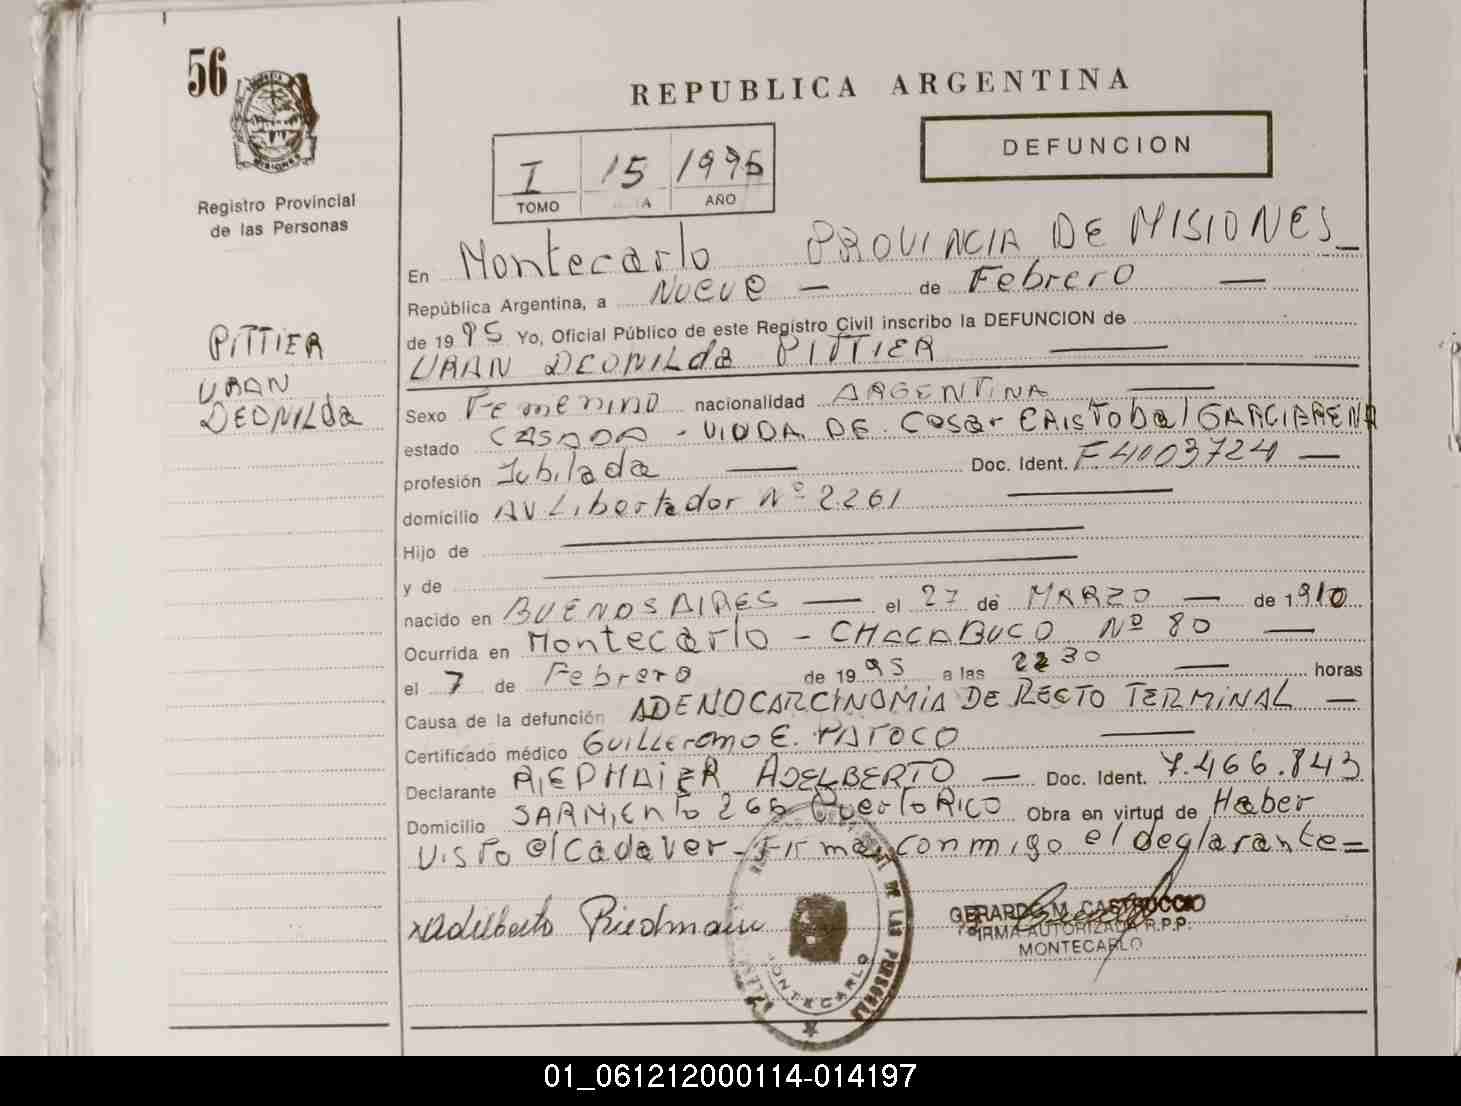 56
MISIONES
Registro Provincial
de las Personas
PITTIER
URAN
DEONILda
REPUBLICA ARGENTINA
DEFUNCION
I 15 1995
TOMO A AÑO
En Montecarlo PROVINCIA DE MISIONES
República Argentina, a Nueve — de Febrero —
de 1995 Yo, Oficial Público de este Registro Civil inscribo la DEFUNCION de
URAN DEONILda PITTIER —
Sexo Femenino nacionalidad ARGENTINA —
estado CASADA - VIUDA DE Cesar CRISTObal GARCIARENA
profesión Jubilada — Doc. Ident. F4103724 —
domicilio AV Libertador Nº 2261 —
Hijo de —
y de —
nacido en BUENOS AIRES — el 27 de MARZO — de 1910
Ocurrida en Montecarlo - CHACABUCO Nº 80 —
el 7 de Febrero de 1995 a las 2230 — horas
Causa de la defunción ADENOCARCINOMIA DE RECTO TERMINAL —
Certificado médico GUILLERMO E. —
Declarante RIEPMAIER ADELBERTO — Doc. Ident. 7.466.843
Domicilio SARMIENTO 266 Puerto RICO Obra en virtud de Haber
VISTO el Cadaver - Firma conmigo el deglarante =
x Adelberto
MONTECARLO
GERARDO M. CASTRUCCIO
FIRMA AUTORIZADA R.P.P.
MONTECARLO
01_061212000114-014197